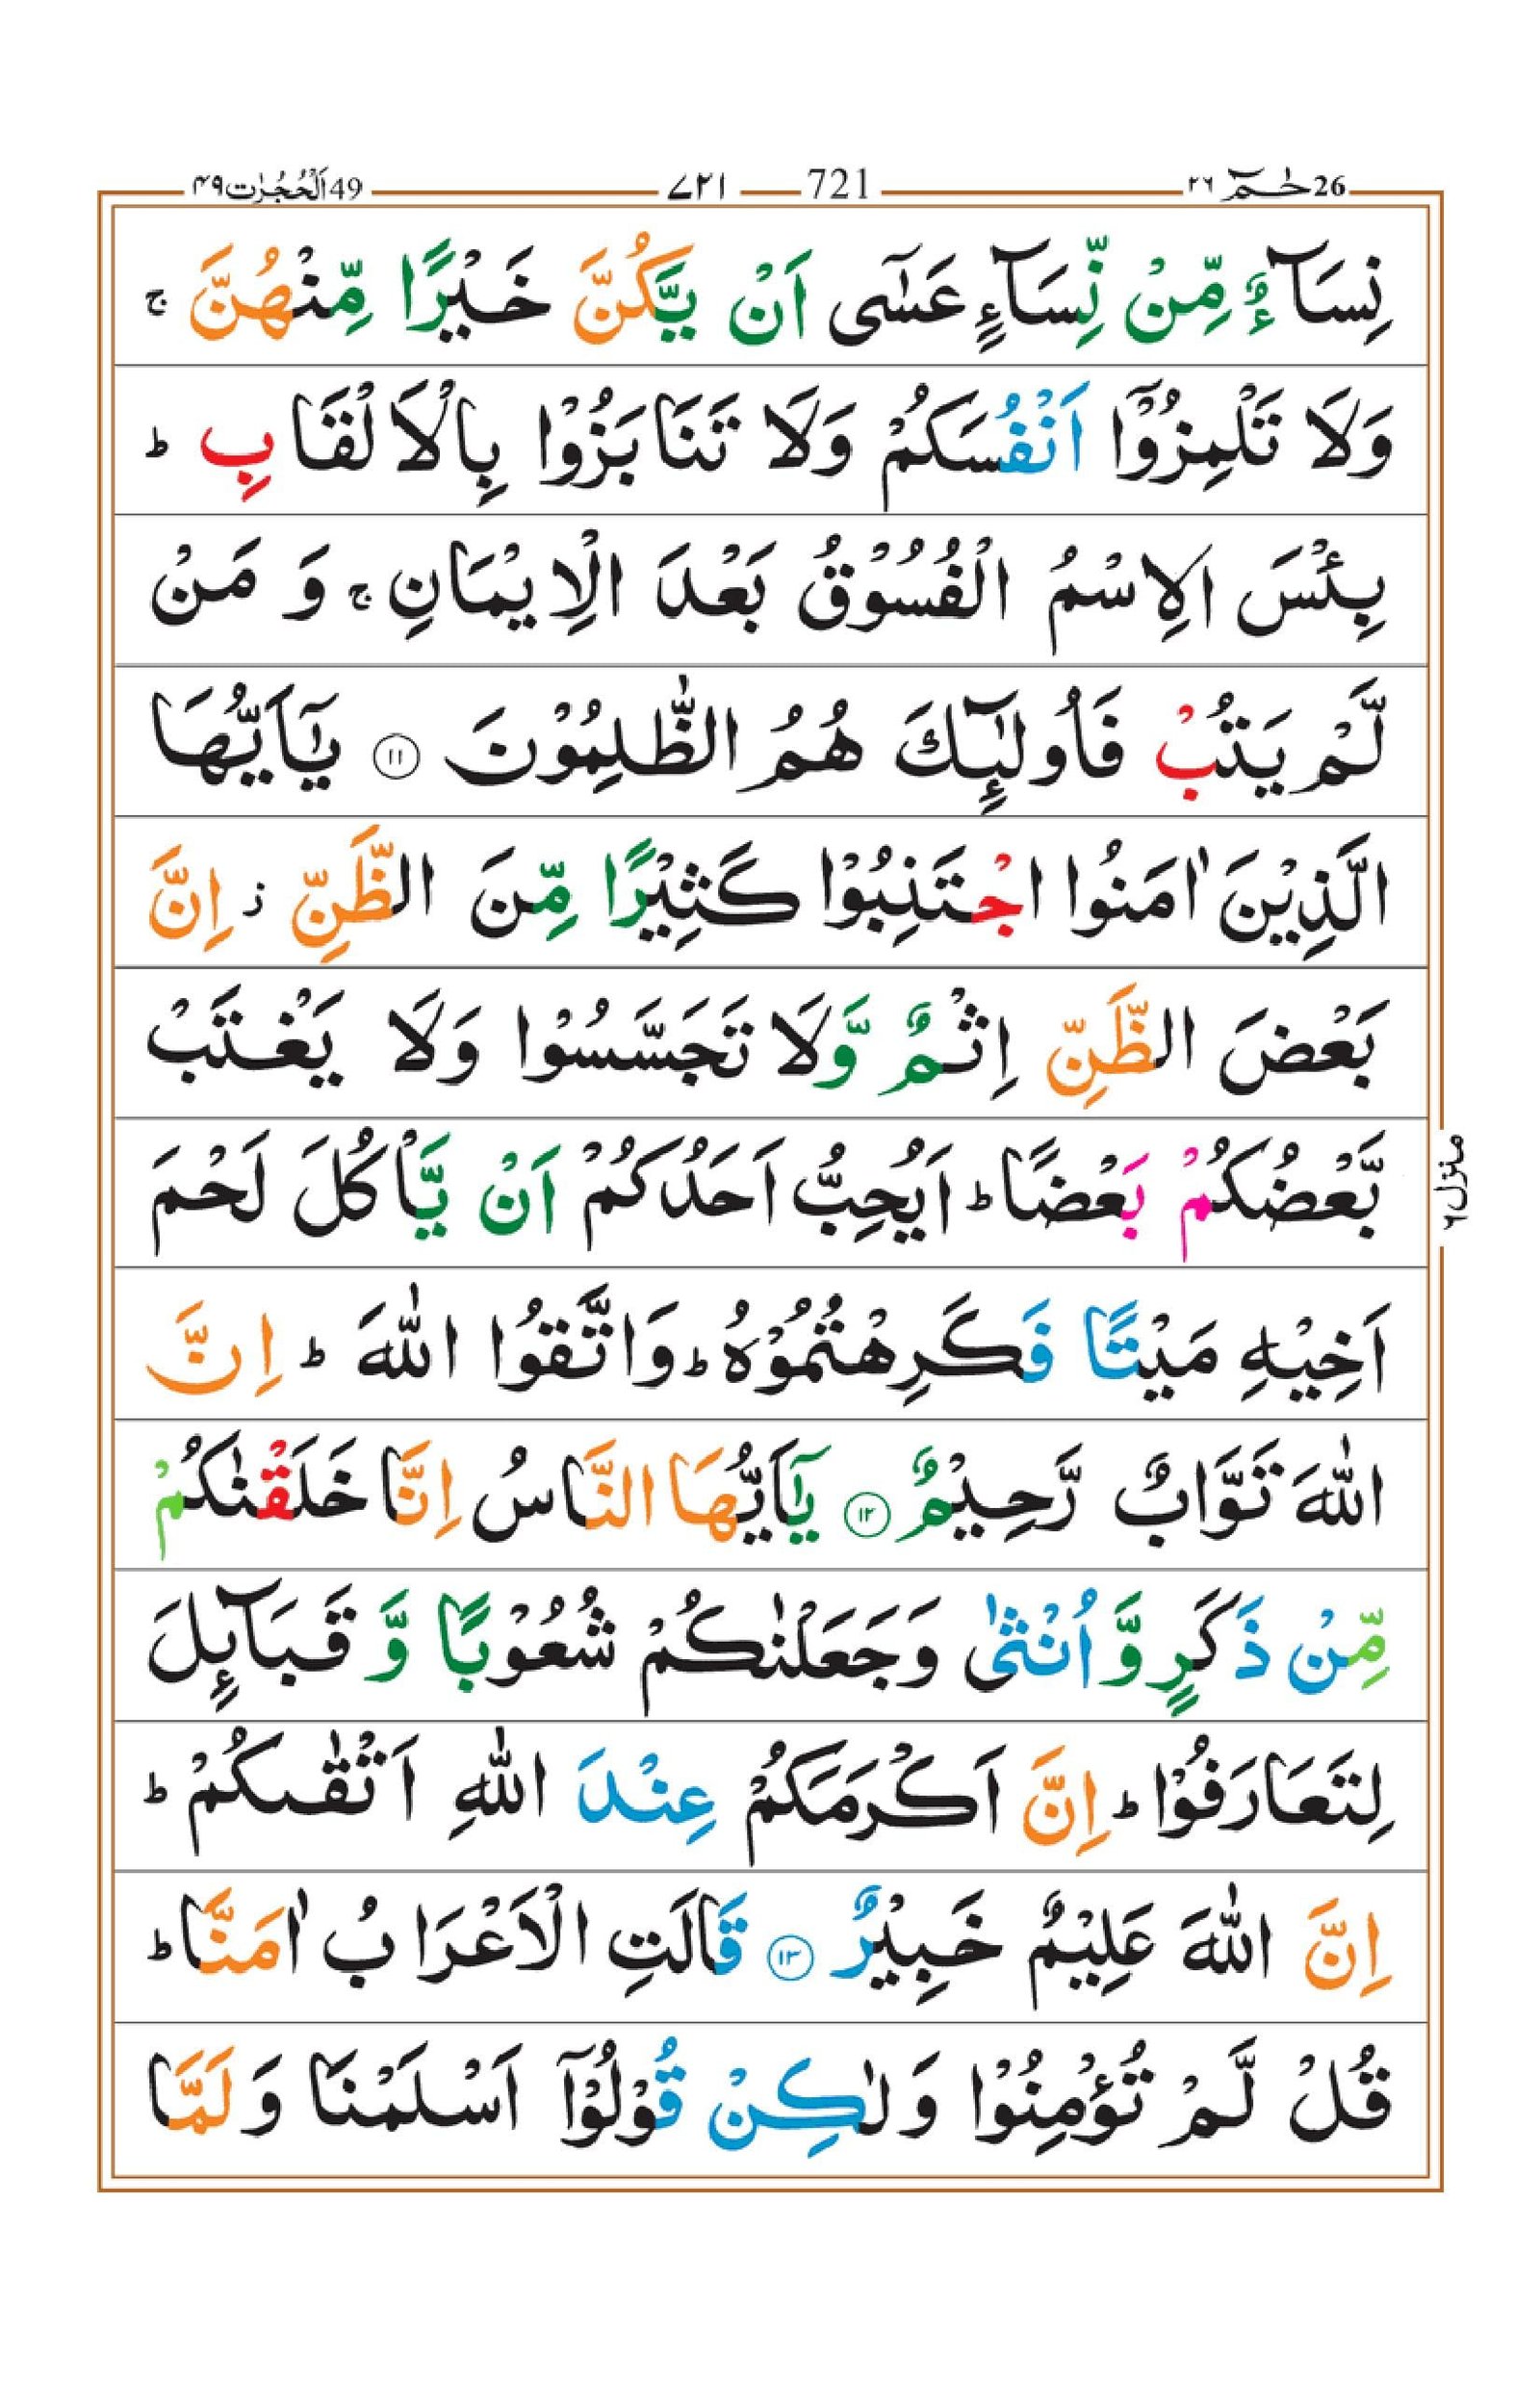 26 حٰمٓ ٢٦ 721 ٧٢١ 49 اَلْحُجُرٰت ٤٩
نِسَآءٌ مِّنْ نِّسَآءٍ عَسٰٓى اَنْ يَّكُنَّ خَيْرًا مِّنْهُنَّ ۚ
وَلَا تَلْمِزُوْٓا اَنْفُسَكُمْ وَلَا تَنَابَزُوْا بِالْاَلْقَابِ ؕ
بِئْسَ الِاسْمُ الْفُسُوْقُ بَعْدَ الْاِيْمَانِ ۚ وَ مَنْ
لَّمْ يَتُبْ فَاُولٰٓئِكَ هُمُ الظّٰلِمُوْنَ ﴿١١﴾ يٰٓاَيُّهَا
الَّذِيْنَ اٰمَنُوا اجْتَنِبُوْا كَثِيْرًا مِّنَ الظَّنِّ ز اِنَّ
بَعْضَ الظَّنِّ اِثْمٌ وَّلَا تَجَسَّسُوْا وَلَا يَغْتَبْ
بَّعْضُكُمْ بَعْضًا ؕ اَيُحِبُّ اَحَدُكُمْ اَنْ يَّاْكُلَ لَحْمَ
اَخِيْهِ مَيْتًا فَكَرِهْتُمُوْهُ ؕ وَاتَّقُوا اللّٰهَ ؕ اِنَّ
اللّٰهَ تَوَّابٌ رَّحِيْمٌ ﴿١٢﴾ يٰٓاَيُّهَا النَّاسُ اِنَّا خَلَقْنٰكُمْ
مِّنْ ذَكَرٍ وَّاُنْثٰى وَجَعَلْنٰكُمْ شُعُوْبًا وَّ قَبَآئِلَ
لِتَعَارَفُوْا ؕ اِنَّ اَكْرَمَكُمْ عِنْدَ اللّٰهِ اَتْقٰىكُمْ ؕ
اِنَّ اللّٰهَ عَلِيْمٌ خَبِيْرٌ ﴿١٣﴾ قَالَتِ الْاَعْرَابُ اٰمَنَّا ؕ
قُلْ لَّمْ تُؤْمِنُوْا وَلٰكِنْ قُوْلُوْٓا اَسْلَمْنَا وَلَمَّا
منزل ٦